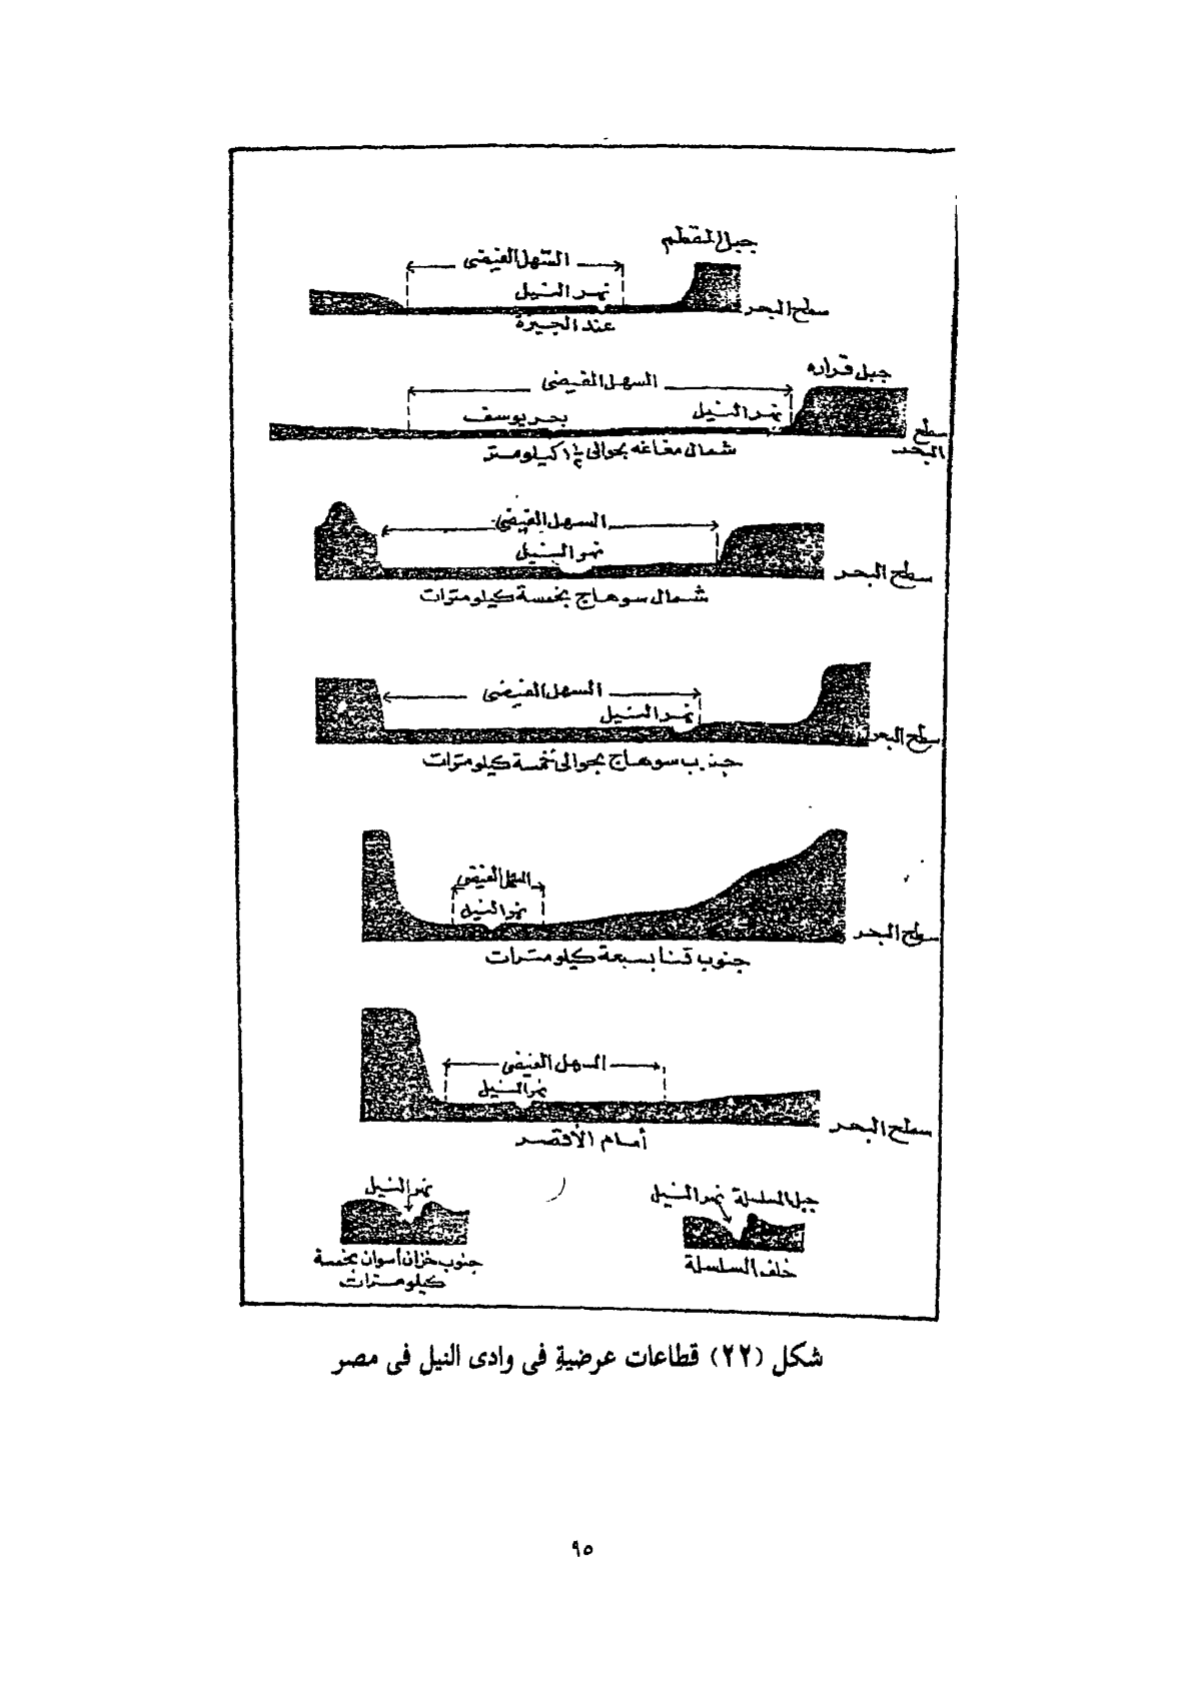 جبل المقطم
السهل الفيضى
نهر النيل
سطح البحر
عند الجيزة
جبل قراره
السهل الفيضى
نهر النيل
بحر يوسف
سطح
البحر
شمال مغاغه بحوالى ١ ١/٢ كيلومتر
السهل الفيضى
نهر النيل
سطح البحر
شمال سوهاج بخمسة كيلومترات
السهل الفيضى
نهر النيل
سطح البحر
جنوب سوهاج بحوالى خمسة كيلومترات
السهل الفيضى
نهر النيل
سطح البحر
جنوب قنا بسبعة كيلومترات
السهل الفيضى
نهر النيل
سطح البحر
أمام الأقصر
جبل السلسلة
نهر النيل
خلف السلسلة
نهر النيل
جنوب خزان أسوان بخمسة
كيلومترات
شكل (٢٢) قطاعات عرضية فى وادى النيل فى مصر
٩٥